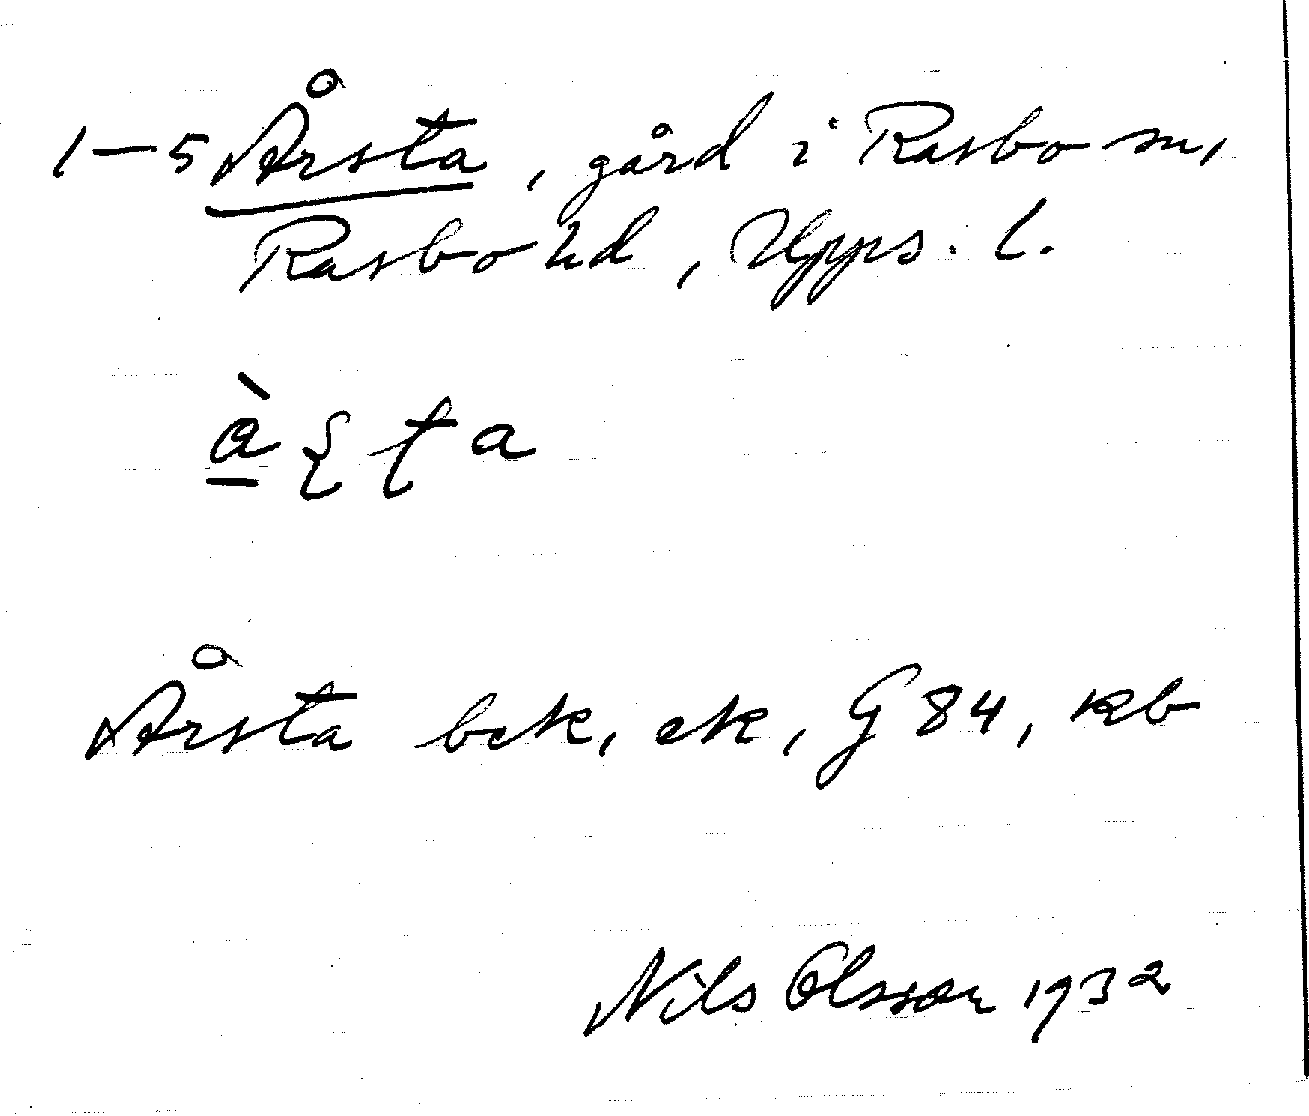 1–5 Årsta, gård i Rasbo sn,
Rasbo hd, Upps. l.
Årsta bek, ek, G 84, kb
Nils Olsson 1932